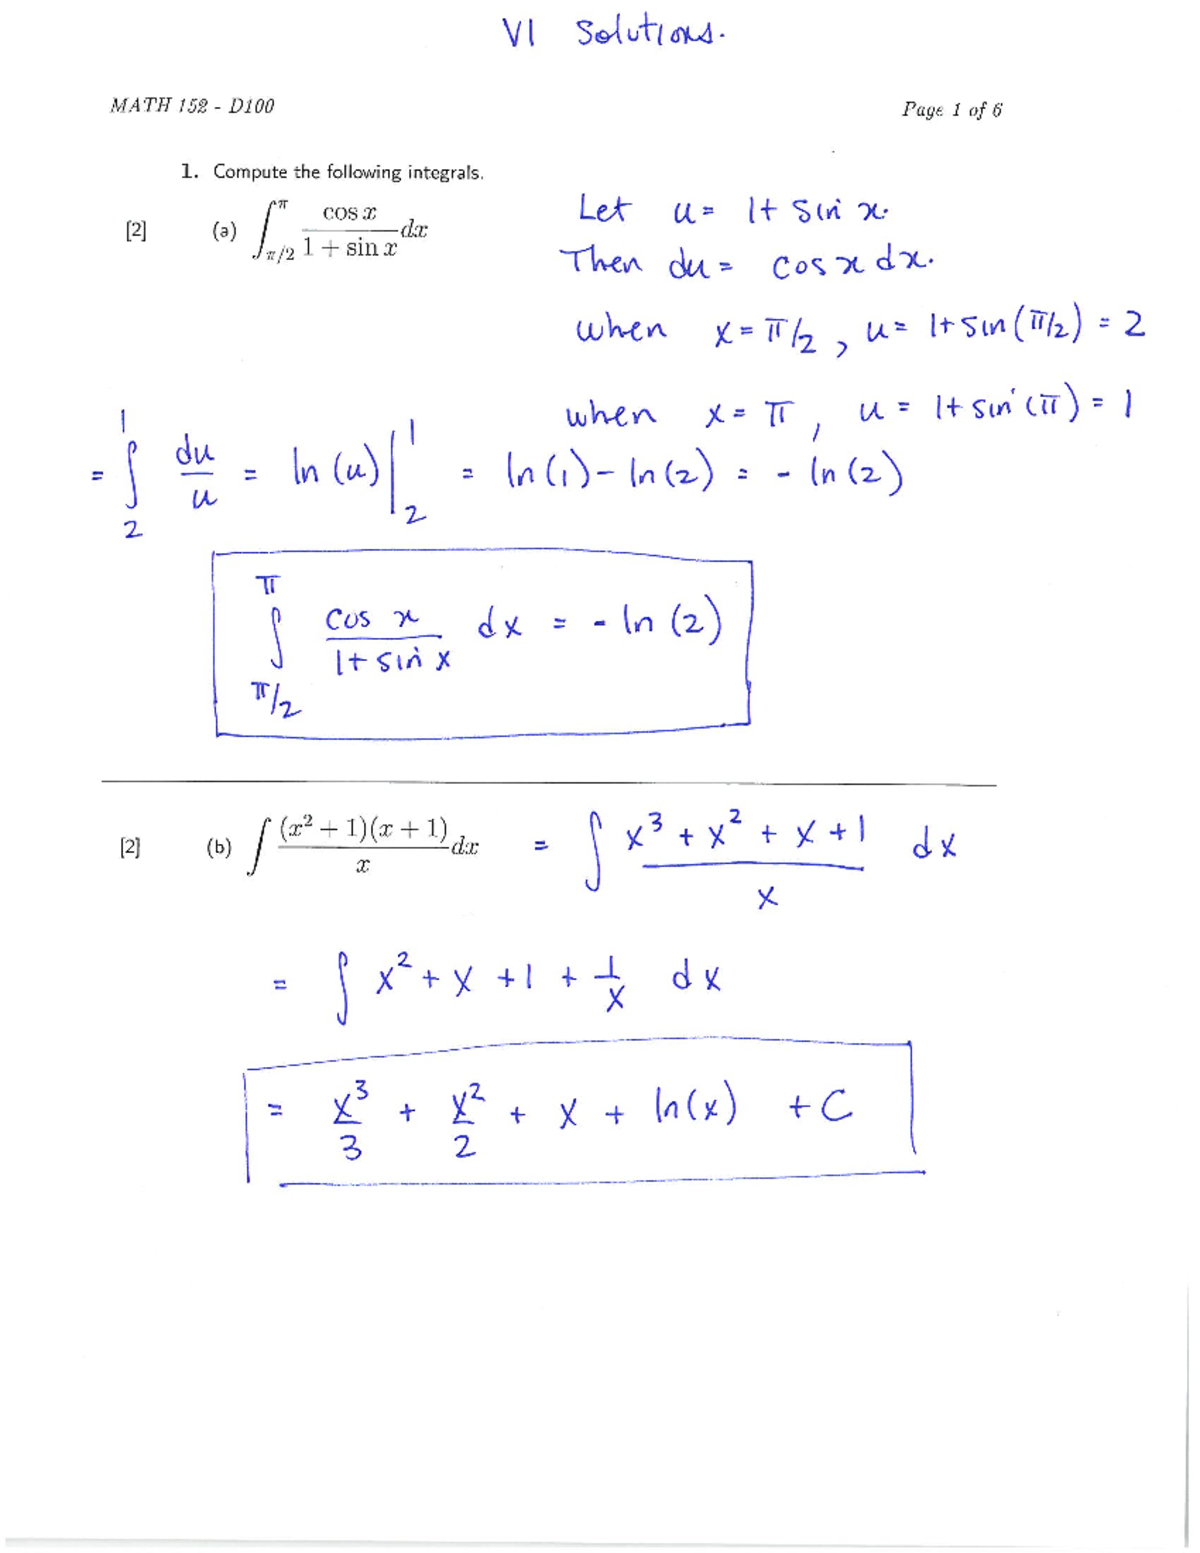 V1 Solutions.
MATH 152 - D100
Page 1 of 6
1. Compute the following integrals.
[2] (a) ∫_{π/2}^{π} cos x / (1 + sin x) dx
Let u = 1 + sin x.
Then du = cos x dx.
when x = π/2, u = 1 + sin(π/2) = 2
when x = π, u = 1 + sin(π) = 1
= ∫_{2}^{1} du/u = ln(u)|_{2}^{1} = ln(1) - ln(2) = - ln(2)
∫_{π/2}^{π} cos x / (1 + sin x) dx = - ln(2)
[2] (b) ∫ (x² + 1)(x + 1) / x dx = ∫ (x³ + x² + x + 1) / x dx
= ∫ x² + x + 1 + 1/x dx
= x³/3 + x²/2 + x + ln(x) + C